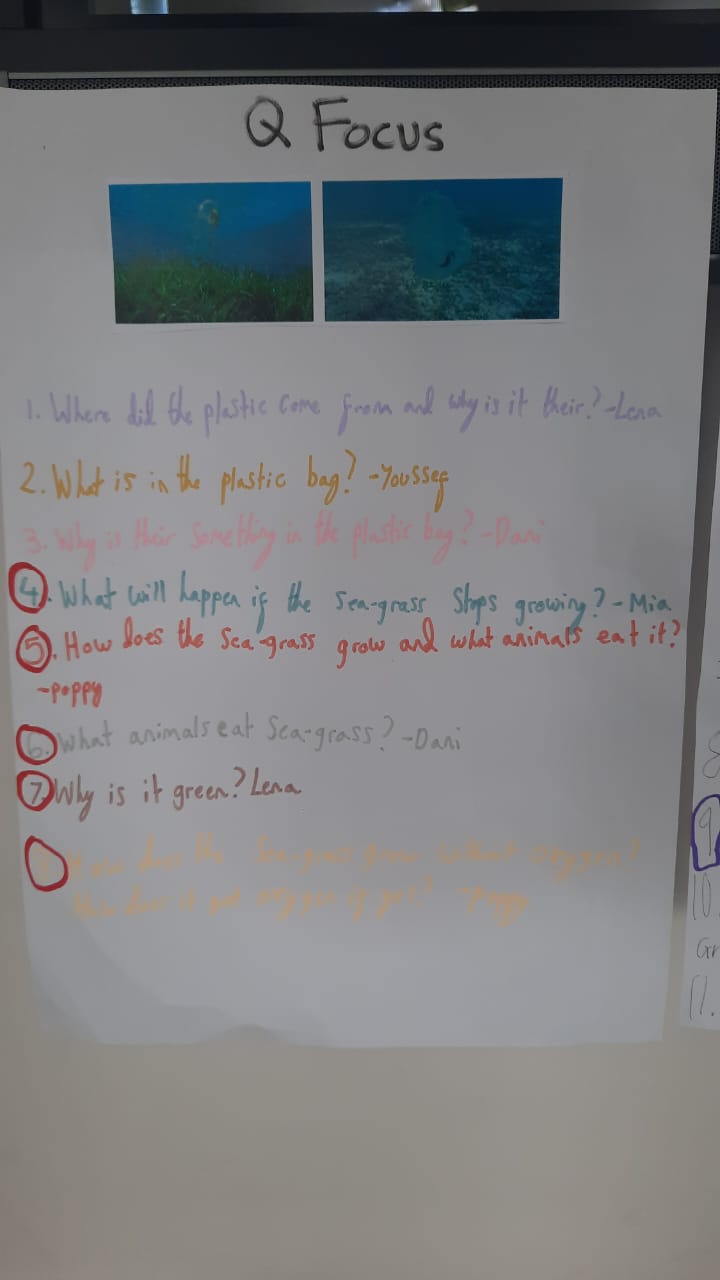 Q Focus
1. Where did the plastic come from and why is it their? -Lena
2. What is in the plastic bag? -Youssef
3. Why is their something in the plastic bag? -Dani
4. What will happen if the Sea-grass Stops growing? - Mia
5. How does the Sea-grass grow and what animals eat it?
-poppy
6. What animals eat Sea-grass? -Dani
7. Why is it green? Lena
How does the Sea-grass grow without oxygen?
How does it get oxygen if yes? Poppy
9
10.
Gr
11.